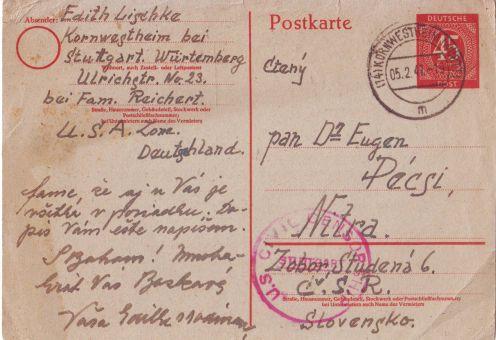 Absender: Edith Lischke
Kornwestheim bei
Stuttgart. Würtemberg
Wohnort, auch Zustell- oder Leitpostamt
Ulrichstr. No. 23.
bei Fam. Reichert.
Straße, Hausnummer, Gebäudeteil, Stockwerk oder
Postschließfachnummer;
bei Untermietern auch Name des Vermieters
U.S.A. Zone.
Deutschland.
že aj u Vás je
v poriadku. Do-
pis Vám ešte napíšem.
S Bohom!
Vás
Vaša
Postkarte
DEUTSCHE
45
POST
(14) KORNWESTHEIM
05.2.4
m
Ctený
pan Dr Eugen
Pécsi,
Nitra.
Zobor Studená 6.
Č.S.R.
Straße, Hausnummer, Gebäudeteil, Stockwerk oder Postschließfachnummer;
bei Untermietern auch Name des Vermieters
Slovensko.
U.S. CIVIL CENSORSHIP